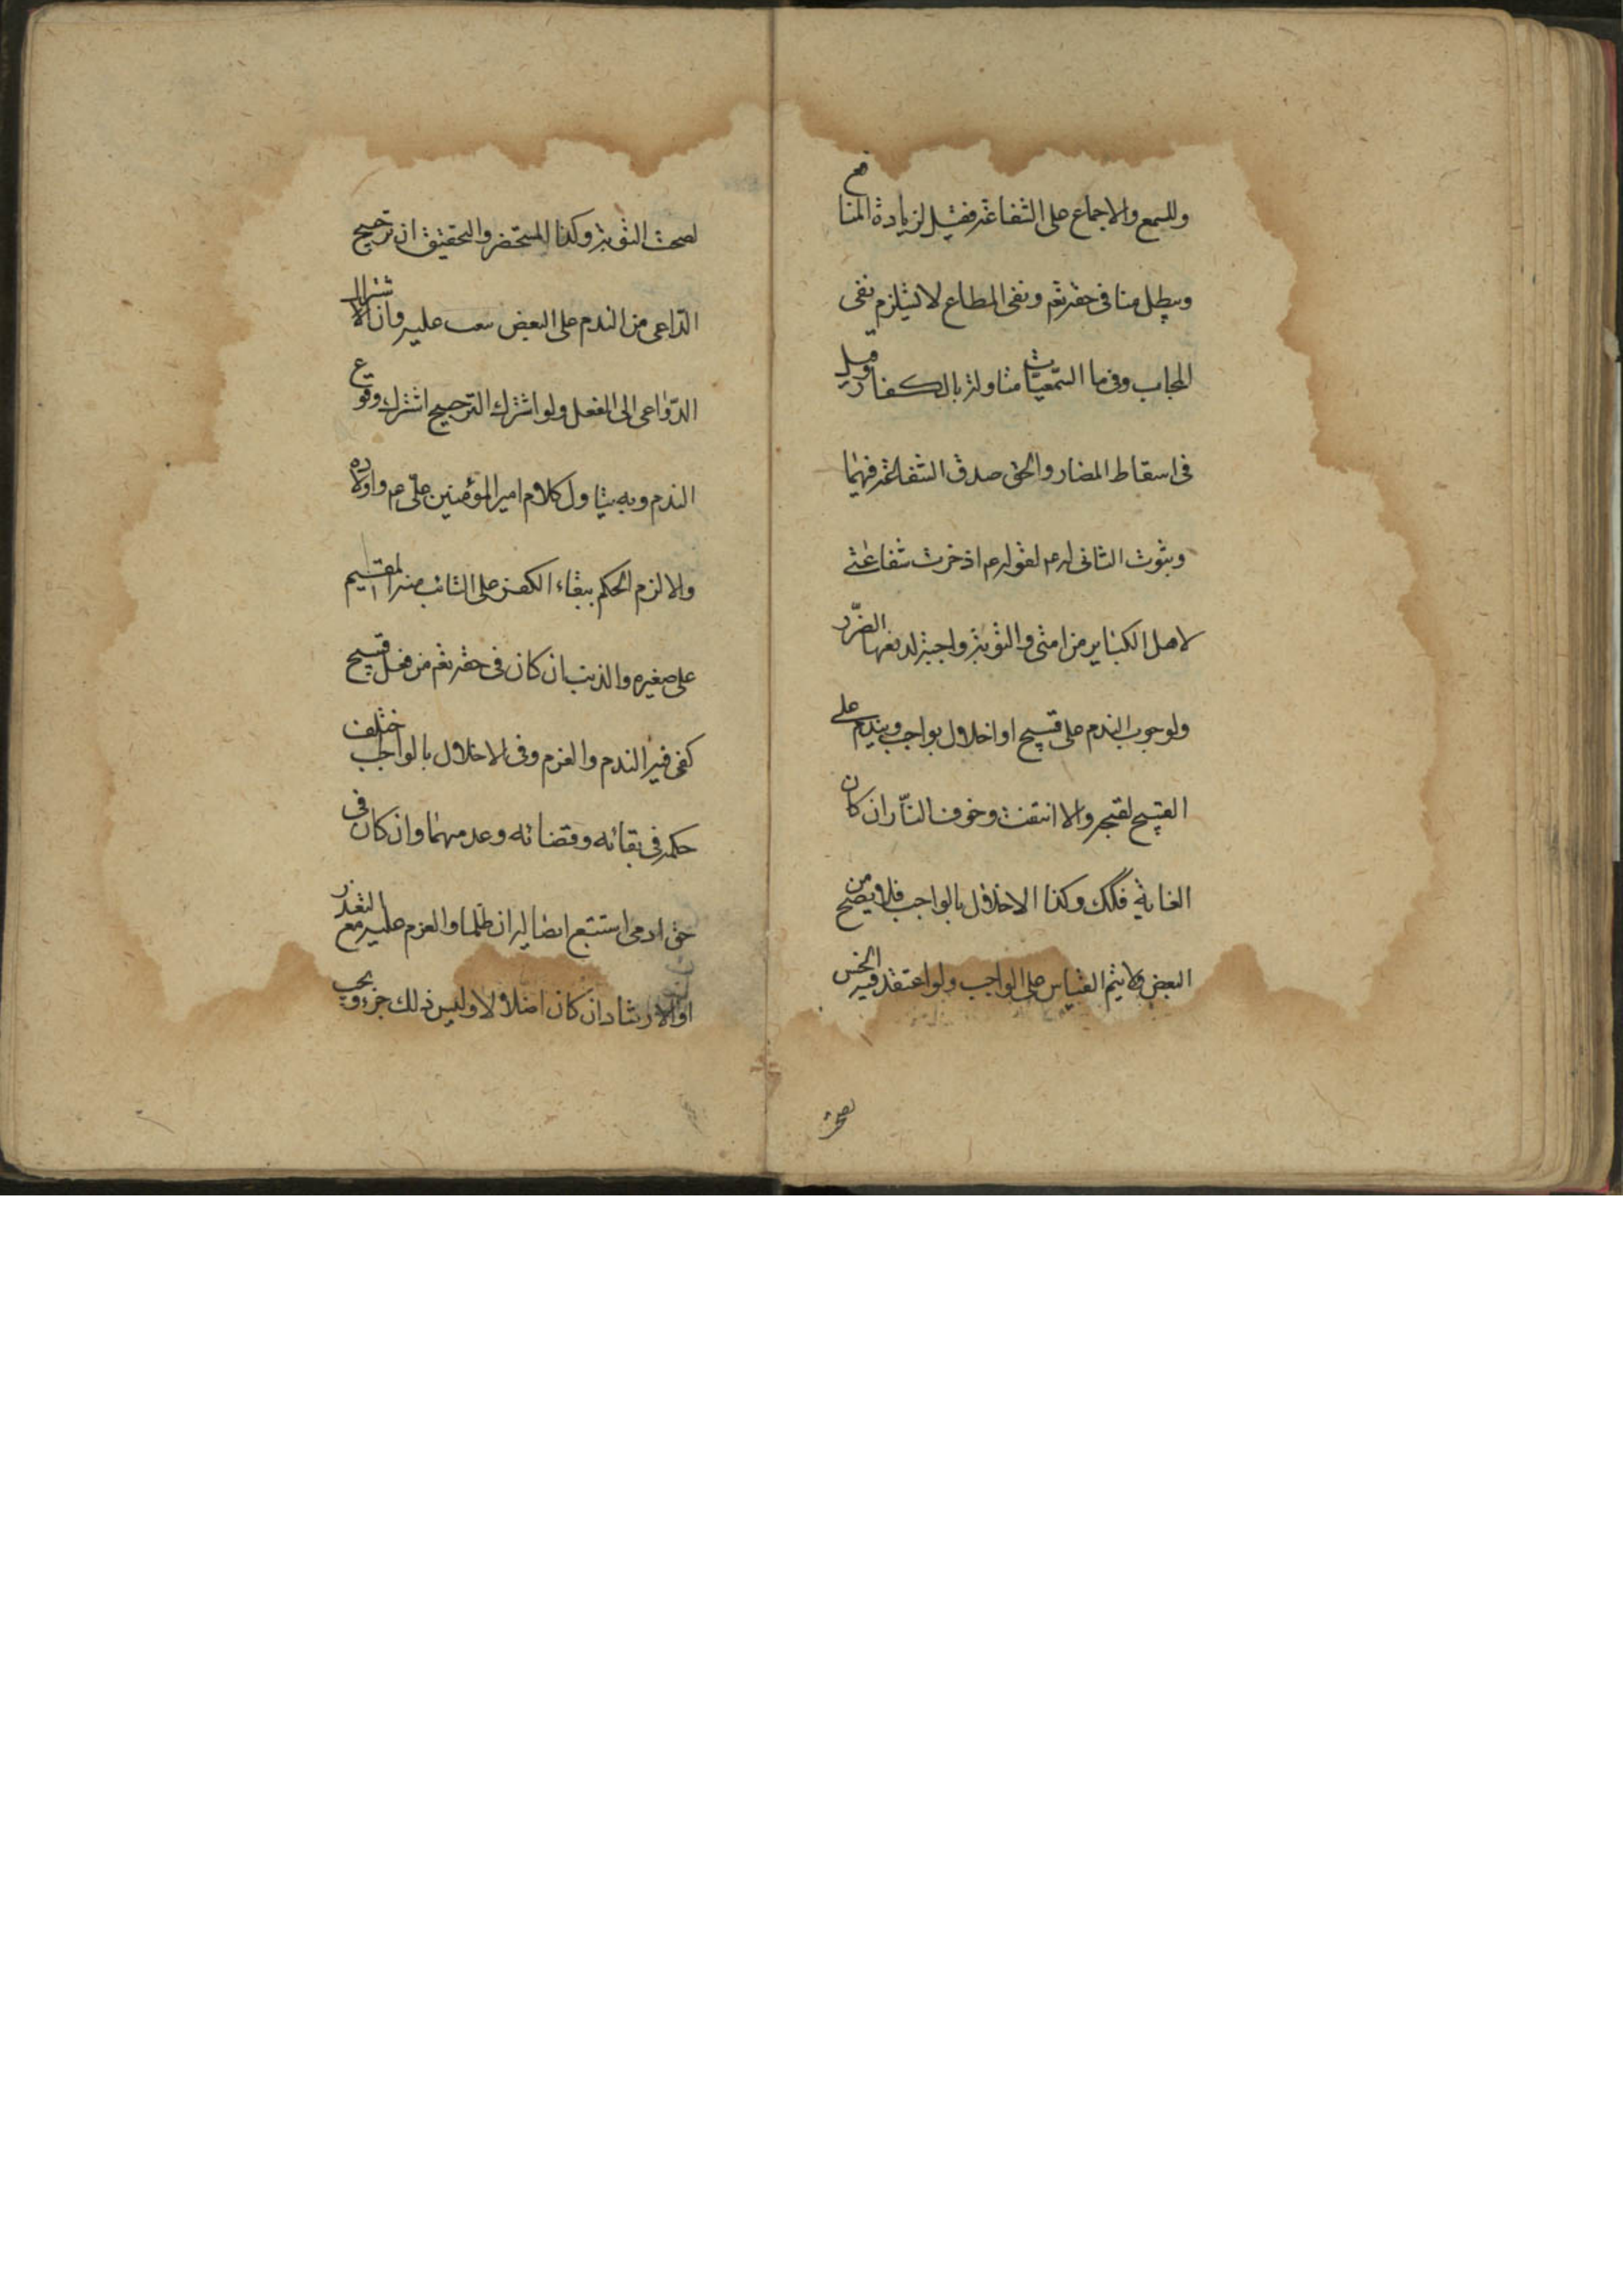 وللسمع والاجماع على الشفاعة فقيل لزيادة المنافع
ويبطل منا في حقه تعم ونفى المطاع لا يستلزم نفى
المجاب وفى ما السمعيات متأولة بالكفار وقيل
فى اسقاط المضار والحق صدق الشفاعة فيهما
وثبوت الثانى له عم لقوله عم ادخرت شفاعتى
لاهل الكباير من امتى والتوبة واجبة لدفعها الضرر
ولوجوب الندم على قبيح او اخلال بواجب ويندم على
القبيح لقبحه والا انتفت وخوف النار ان كان
الغاية فكك وكذا الاخلال بالواجب فلا يصح من
البعض ولا يتم القياس على الواجب ولو اعتقد فيه الحسن
لصحت
لصحت التوبة وكذا المستحقر والتحقيق ان ترجيح
الداعى من الندم على البعض يبعث عليه وان الاشتراك
الدواعى الى الفعل ولو اشترك الترجيح اشترك وقوع
الندم وبه يتاول كلام امير المؤمنين على عم واولاده
والا لزم الحكم ببقاء الكفر على التائب منه المقيم
على صغيره والذنب ان كان فى حقه تعم من فعل قبيح
كفى فيه الندم والعزم وفى الاخلال بالواجب اختلف
حكمه فى بقائه وقضائه وعدمهما وان كان فى
حق ادمى استتبع ايصاله ان ظلما والعزم عليه مع التعذر
او الارشاد ان كان اضلالا وليس ذلك جزء ويجب